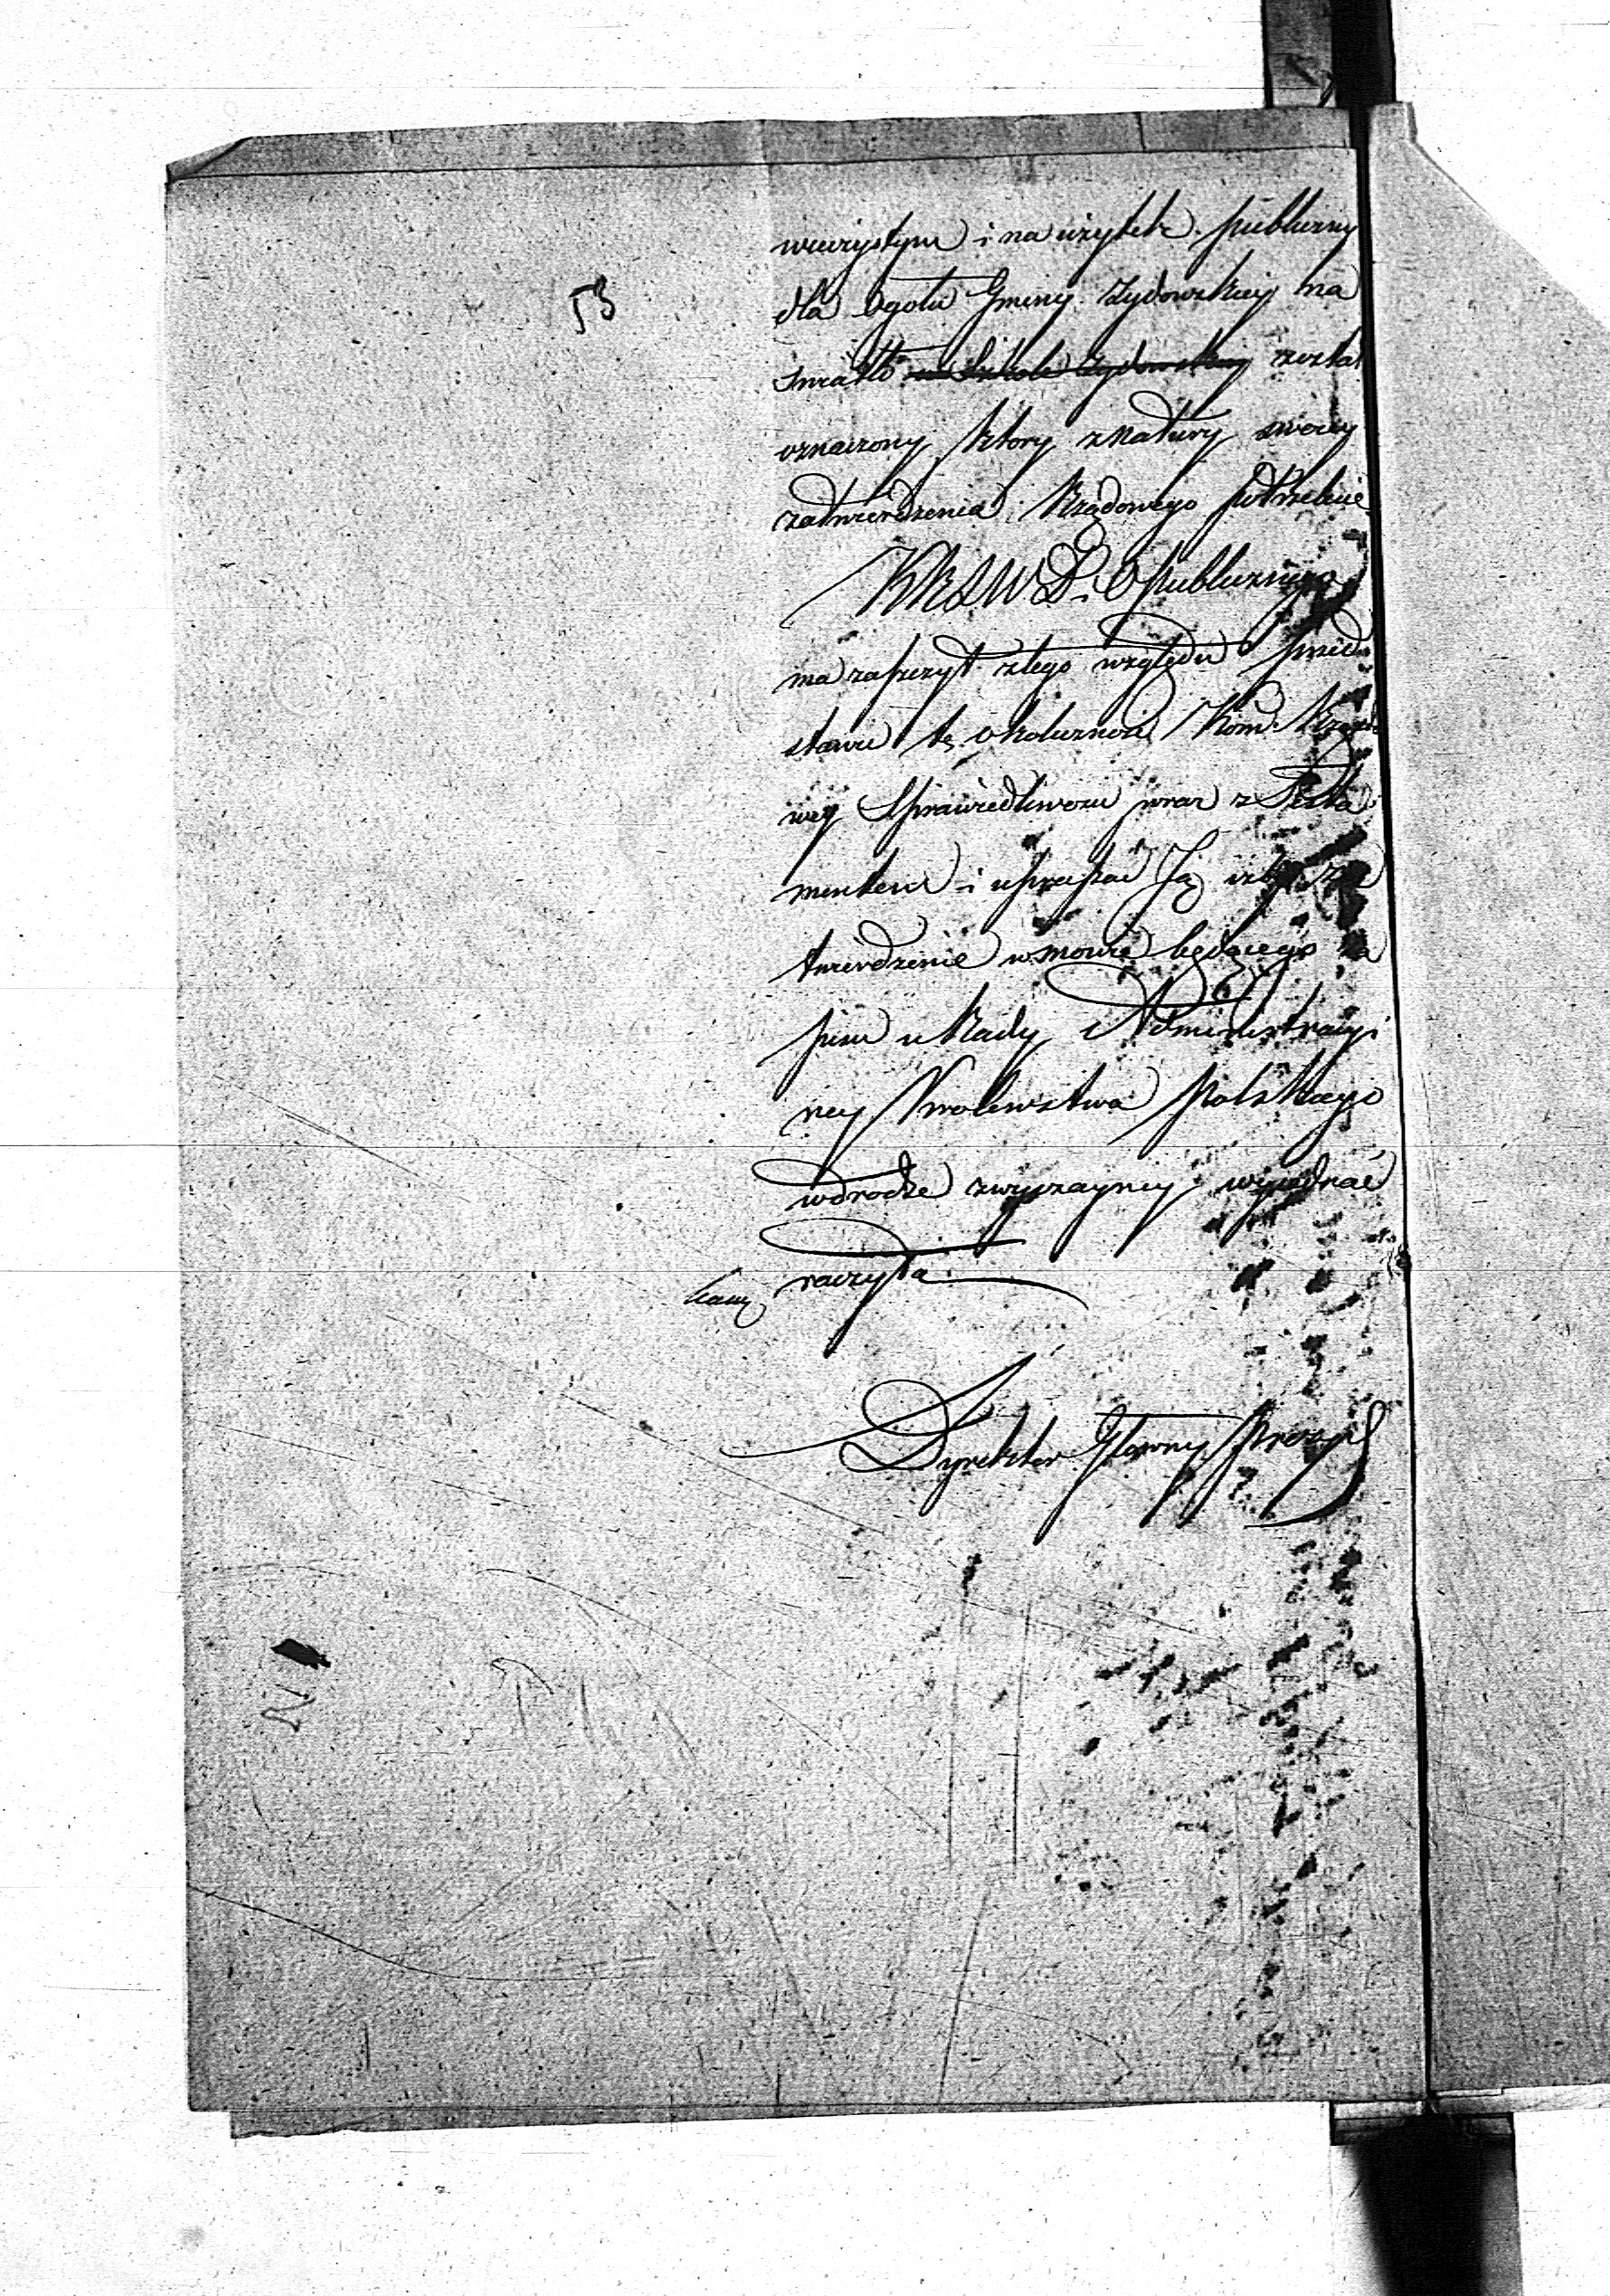 53
wieczystym i na użytek publiczny
dla Ogołu Gminy Żydowskiey na
światło w Szkole Żydowskiey został
oznaczony, ktory z natury swoiey
zatwierdzenia Rządowego potrzebuie
KRSWD i O publicznego
ma zaszczyt z tego względu przed
stawić tę okoliczność Kom: Rządo
wey Sprawiedliwości wraz z Testa
mentem i upraszać Ją iżby za
twierdzenie w mowie będącego za
pisu u Rady Administracyi
ney Krolewstwa Polskiego
w drodze zwyczayney wyiednać
raczyła
Dyrektor Głowny Prezyd